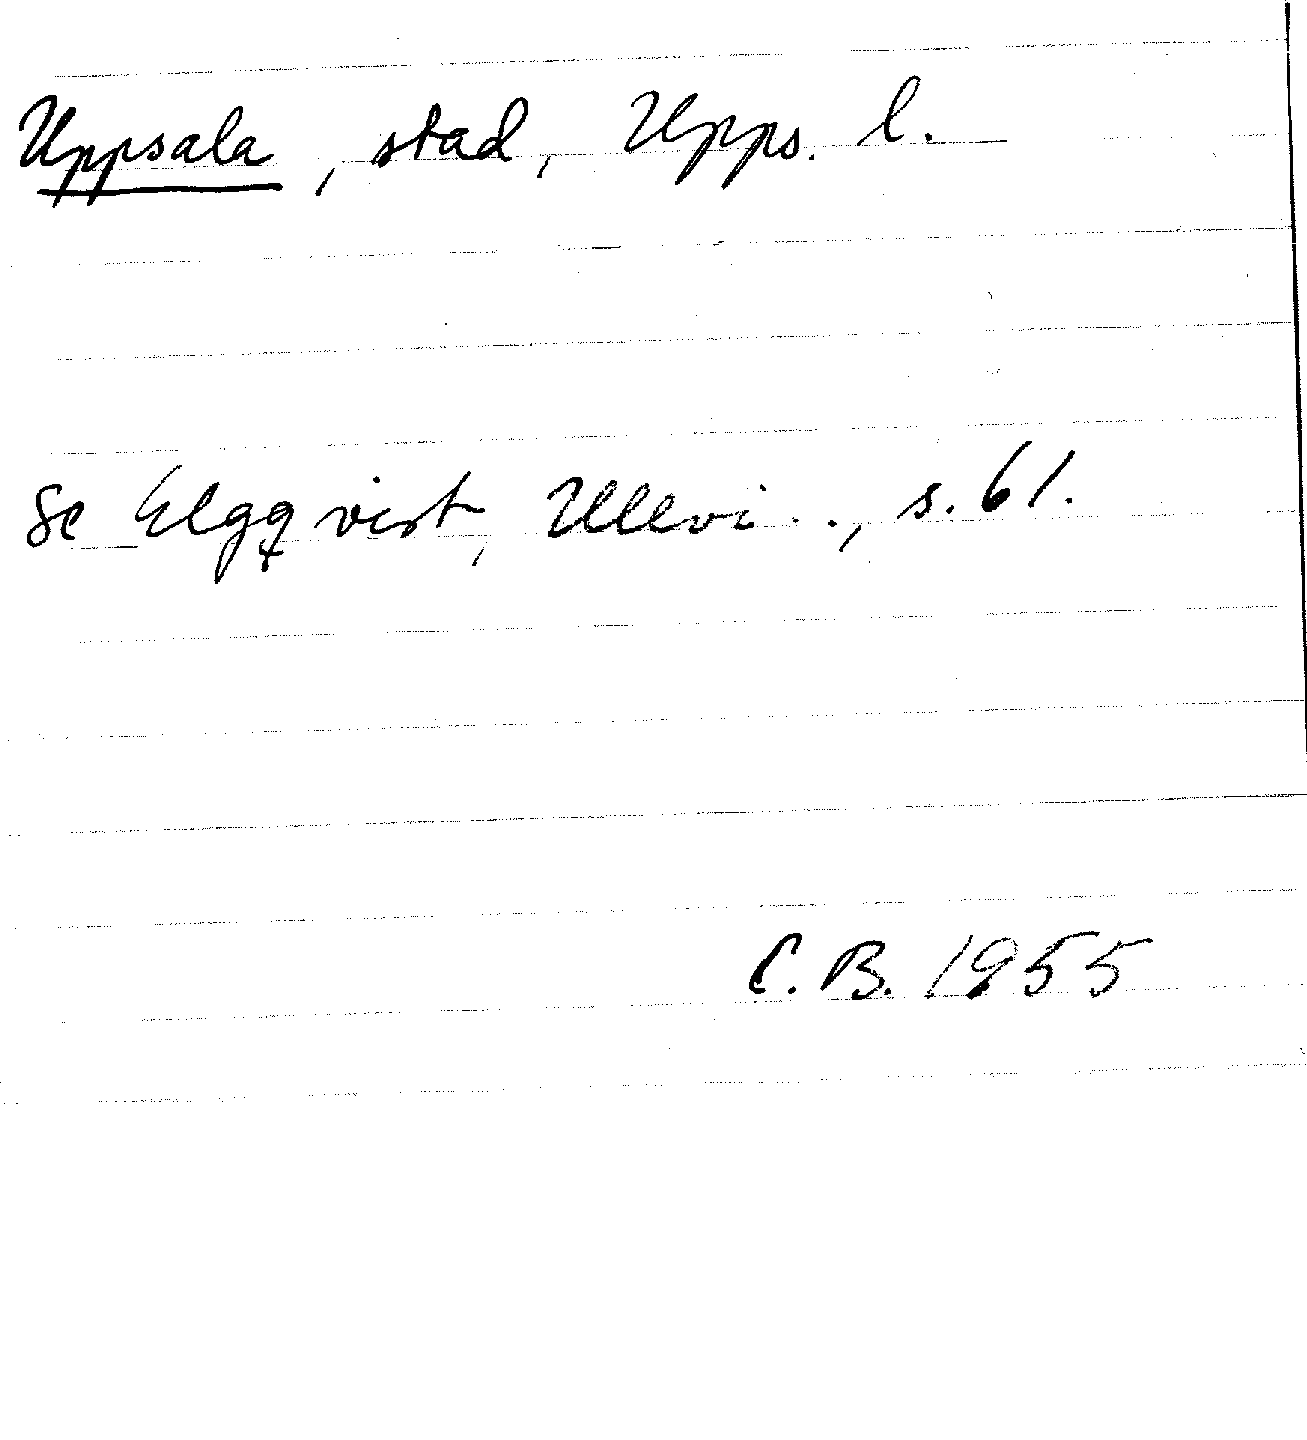 Uppsala, stad, Upps. l.
Se Elgqvist, Ullevi . ., s. 61.
C. B. 1955